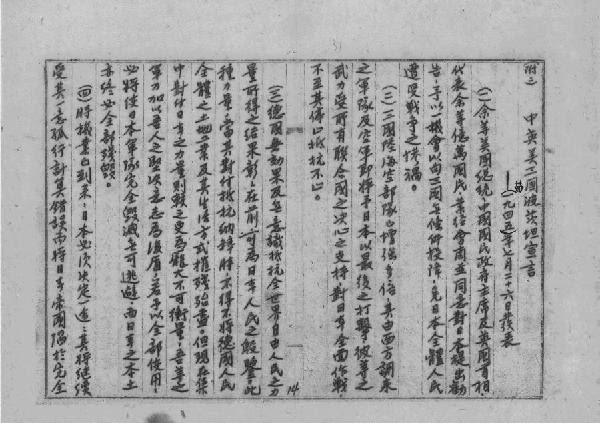 附二 中英美三國波茨坦宣言
——一九四五年七月二十六日發表
(一)余等美國總統中國國民政府主席及英國首相
代表余等億萬國民業經會商並同意對日本提出勸
告予以一機會以向三國無條件投降免日本全體人民
遭受戰爭之慘禍。
(二)三國陸海空部隊已增强多倍其由西方調來
之軍隊及空軍即將予日本以最後之打擊彼等之
武力受所有聯合國之决心之支持對日本全面作戰
不至其停止抵抗不止。
(三)德國無効果及無意識抵抗全世界自由人民之力
量所得之結果彰彰在前可為日本人民之殷鑒。此
種力量當其對付抵抗納粹時不得不將德國人民
全體之土地工業及其生活方式摧殘殆盡。但現在集
中對付日本之力量則較之更為龐大不可衡量。吾等之
軍力加以吾人之堅决意志為後盾若予以全部使用
必將使日本軍隊完全毀滅無可逃避而日本之本土
亦終必全部殘毀。
(四)時機業已到來日本必須决定一途其將繼續
受其一意孤行計算錯誤而將日本帝國陷於完全
14